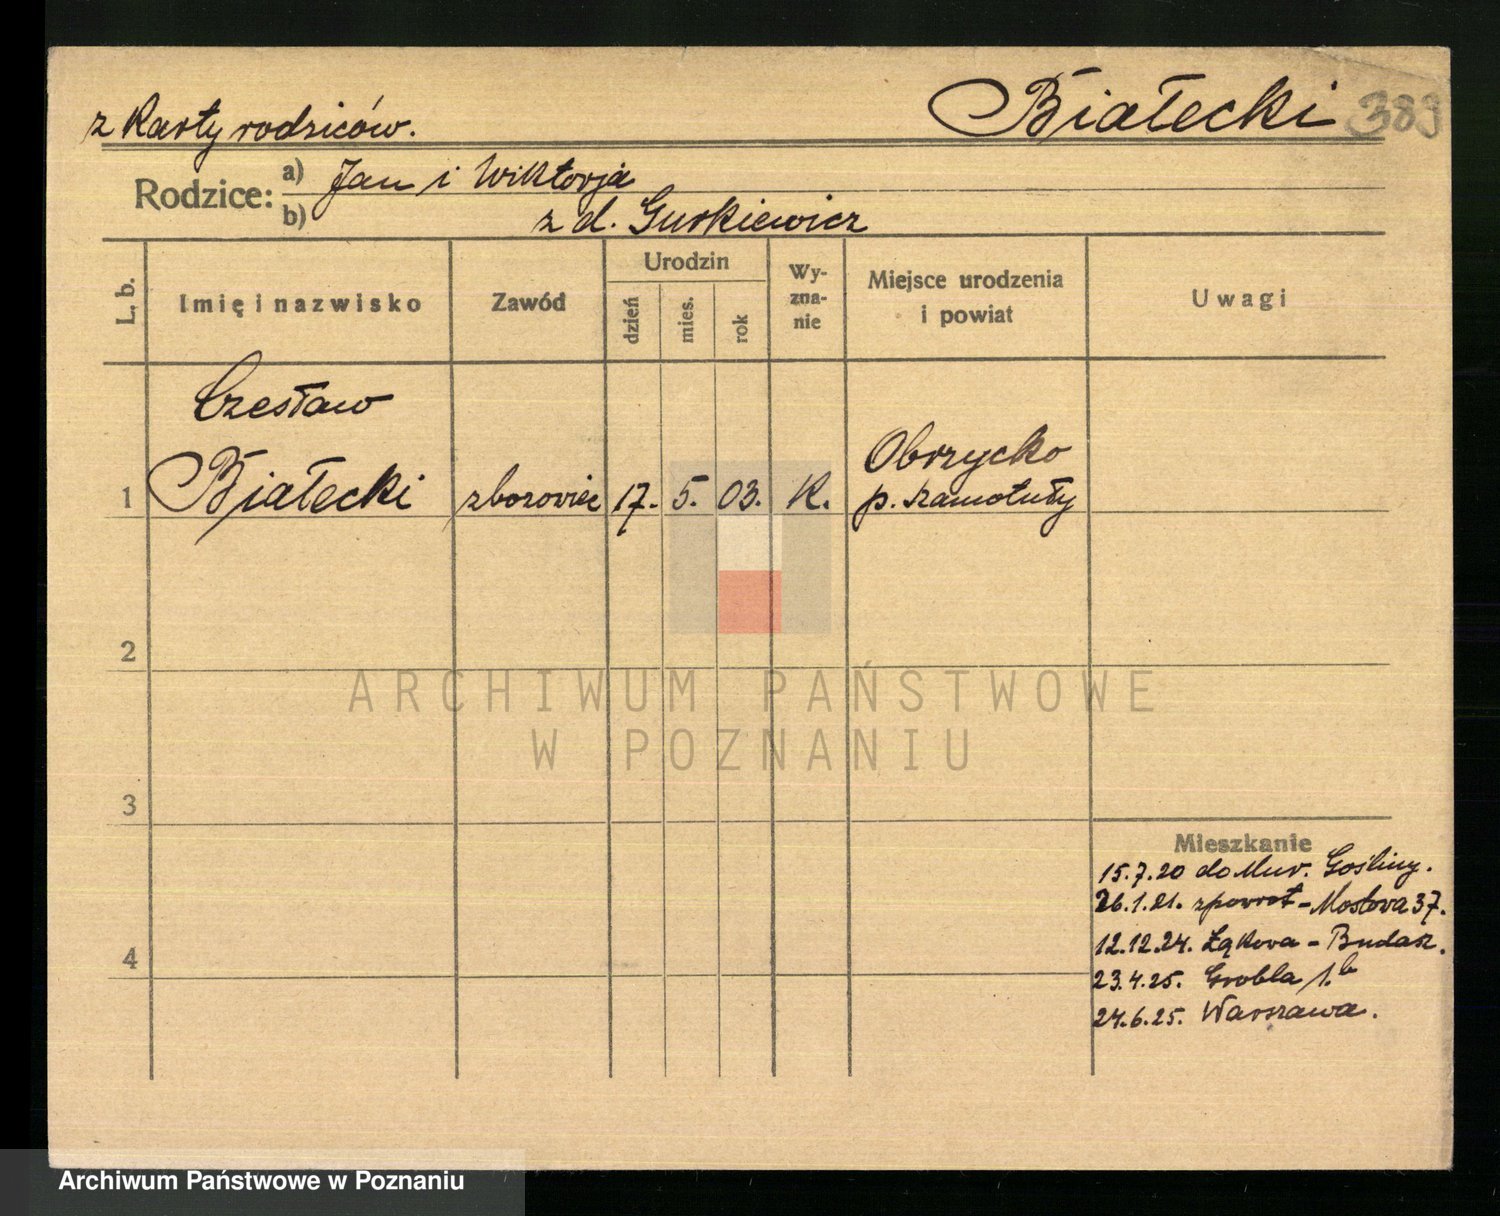 z Karty rodziców.
Białecki 389
Rodzice: a) Jan i Wiktorja
b) z d. Gurkiewicz
L. b.
Imię i nazwisko
Zawód
Urodzin
dzień
mies.
rok
Wy-
zna-
nie
Miejsce urodzenia
i powiat
Uwagi
Czesław
1 Białecki zbozowiec 17. 5. 03. K. Obrzycko
p. Szamotuły
2
ARCHIWUM PAŃSTWOWE
W POZNANIU
3
Mieszkanie
15.7.20 do Mur. Gośliny.
26.1.21. zpowrot - Mostowa 37.
4
12.12.24. Łąkowa - Budasz.
23.4.25. Grobla 1.b
24.6.25. Warszawa.
Archiwum Państwowe w Poznaniu